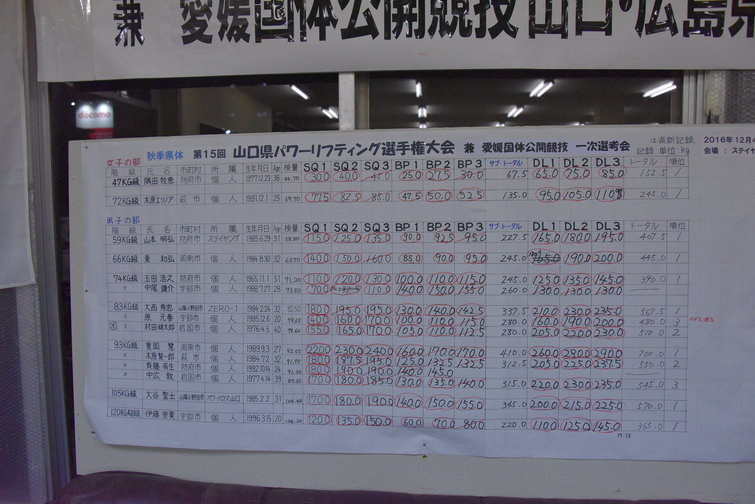 兼 愛媛国体公開競技 山口・広島県
docomo
秋季県体 第15回 山口県パワーリフティング選手権大会 兼 愛媛国体公開競技 一次選考会
は県新記録 2016年12月4
記録 単位:Kg 会場:ステイヤ
女子の部
階級 氏名 市町村 所属 生年月日 Age 検量 SQ1 SQ2 SQ3 BP1 BP2 BP3 サブトータル DL1 DL2 DL3 トータル 順位
47KG級 隅田 牧恵 防府市 個人 1977.12.23 38 30.0 40.0 45.0 25.0 27.5 30.0 67.5 65.0 75.0 85.0 152.5 1
72KG級 木原エリア 萩市 個人 1991.12.1 25 69.70 77.5 82.5 85.0 47.5 50.0 52.5 135.0 95.0 105.0 245.0 1
男子の部
階級 氏名 市町村 所属 生年月日 Age 検量 SQ1 SQ2 SQ3 BP1 BP2 BP3 サブトータル DL1 DL2 DL3 トータル 順位
59KG級 山本 明弘 防府市 ステイヤング 1985.6.29 31 115.0 125.0 135.0 90.0 92.5 95.0 227.5 165.0 180.0 195.0 407.5 1
66KG級 東 和弘 周南市 個人 1984.8.30 32 63.70 140.0 150.0 160.0 85.0 90.0 95.0 245.0 190.0 200.0 445.0 1
74KG級 玉田 浩之 防府市 個人 1965.11.1 51 110.0 120.0 130.0 100.0 110.0 115.0 245.0 125.0 135.0 145.0 390.0 1
〃 中尾 謙介 宇部市 個人 1988.7.27 28 73.50 110.0 140.0 150.0 155.0 260.0 130.0 130.0 130.0
83KG級 大西 秀忠 山陽小野田市 ZERO-1 1984.2.24 32 180.0 195.0 195.0 130.0 140.0 142.5 337.5 210.0 230.0 235.0 567.5 1
〃 原 元春 宇部市 個人 1995.2.6 20 160.0 170.0 100.0 110.0 115.0 280.0 160.0 190.0 200.0 480.0 3
〃 村田健太郎 岩国市 個人 1976.4.5 40 155.0 165.0 170.0 105.0 110.0 112.5 280.0 510.0 2
93KG級 重岡 慧 周南市 個人 1989.9.3 27 220.0 230.0 240.0 160.0 170.0 170.0 410.0 260.0 280.0 290.0 700.0 1
〃 木原賢一郎 萩市 個人 1984.7.2 32 180.0 187.5 195.0 125.0 132.5 132.5 312.5 205.0 225.0 237.5 550.0 2
〃 斉藤 有生 防府市 個人 1992.10.14 24 180.0 190.0 190.0 140.0 145.0
〃 中広 敦 岩国市 個人 1977.4.14 39 170.0 180.0 185.0 130.0 135.0 140.0 315.0 220.0 230.0 235.0 545.0 3
105KG級 大谷 聖士 山陽小野田市 パワーハウス山口 1985.2.2 31 170.0 180.0 190.0 140.0 150.0 155.0 345.0 200.0 215.0 225.0 570.0 1
120KG超級 伊藤 誉貴 宇部市 個人 1996.3.15 20 120.0 135.0 150.0 60.0 70.0 80.0 220.0 110.0 125.0 145.0 365.0 1